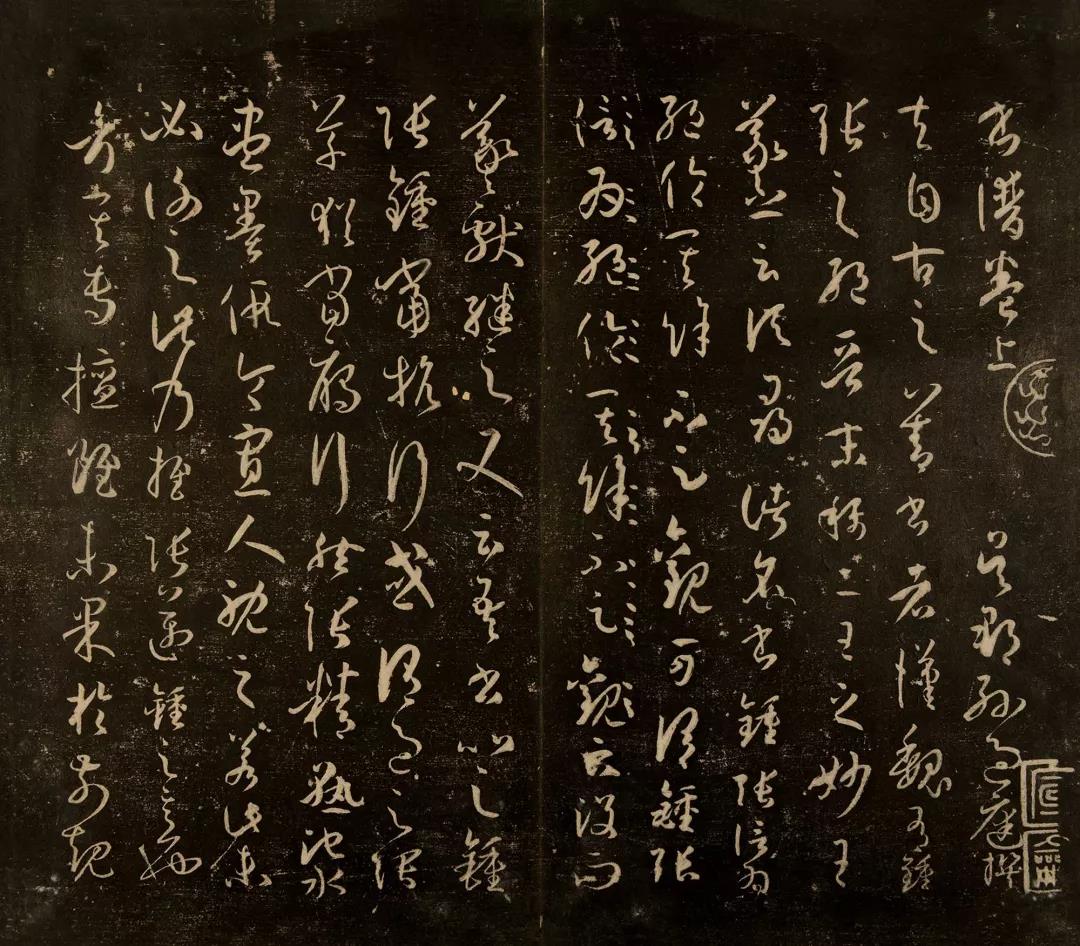 書譜卷上 吳郡孫過庭撰
夫自古之善書者漢魏有鍾
張之絕晉末稱二王之妙王
羲之云頃尋諸名書鍾張信為
絕倫其餘不足觀可謂鍾張
信為絕倫其餘不足觀云沒而
羲獻繼之又云吾書比之鍾
張鍾當抗行或謂過之張
草猶當鴈行然張精熟池水
盡墨假令寡人耽之若此未
必謝之此乃推張邁鍾之意也
考其專擅雖未果於前規